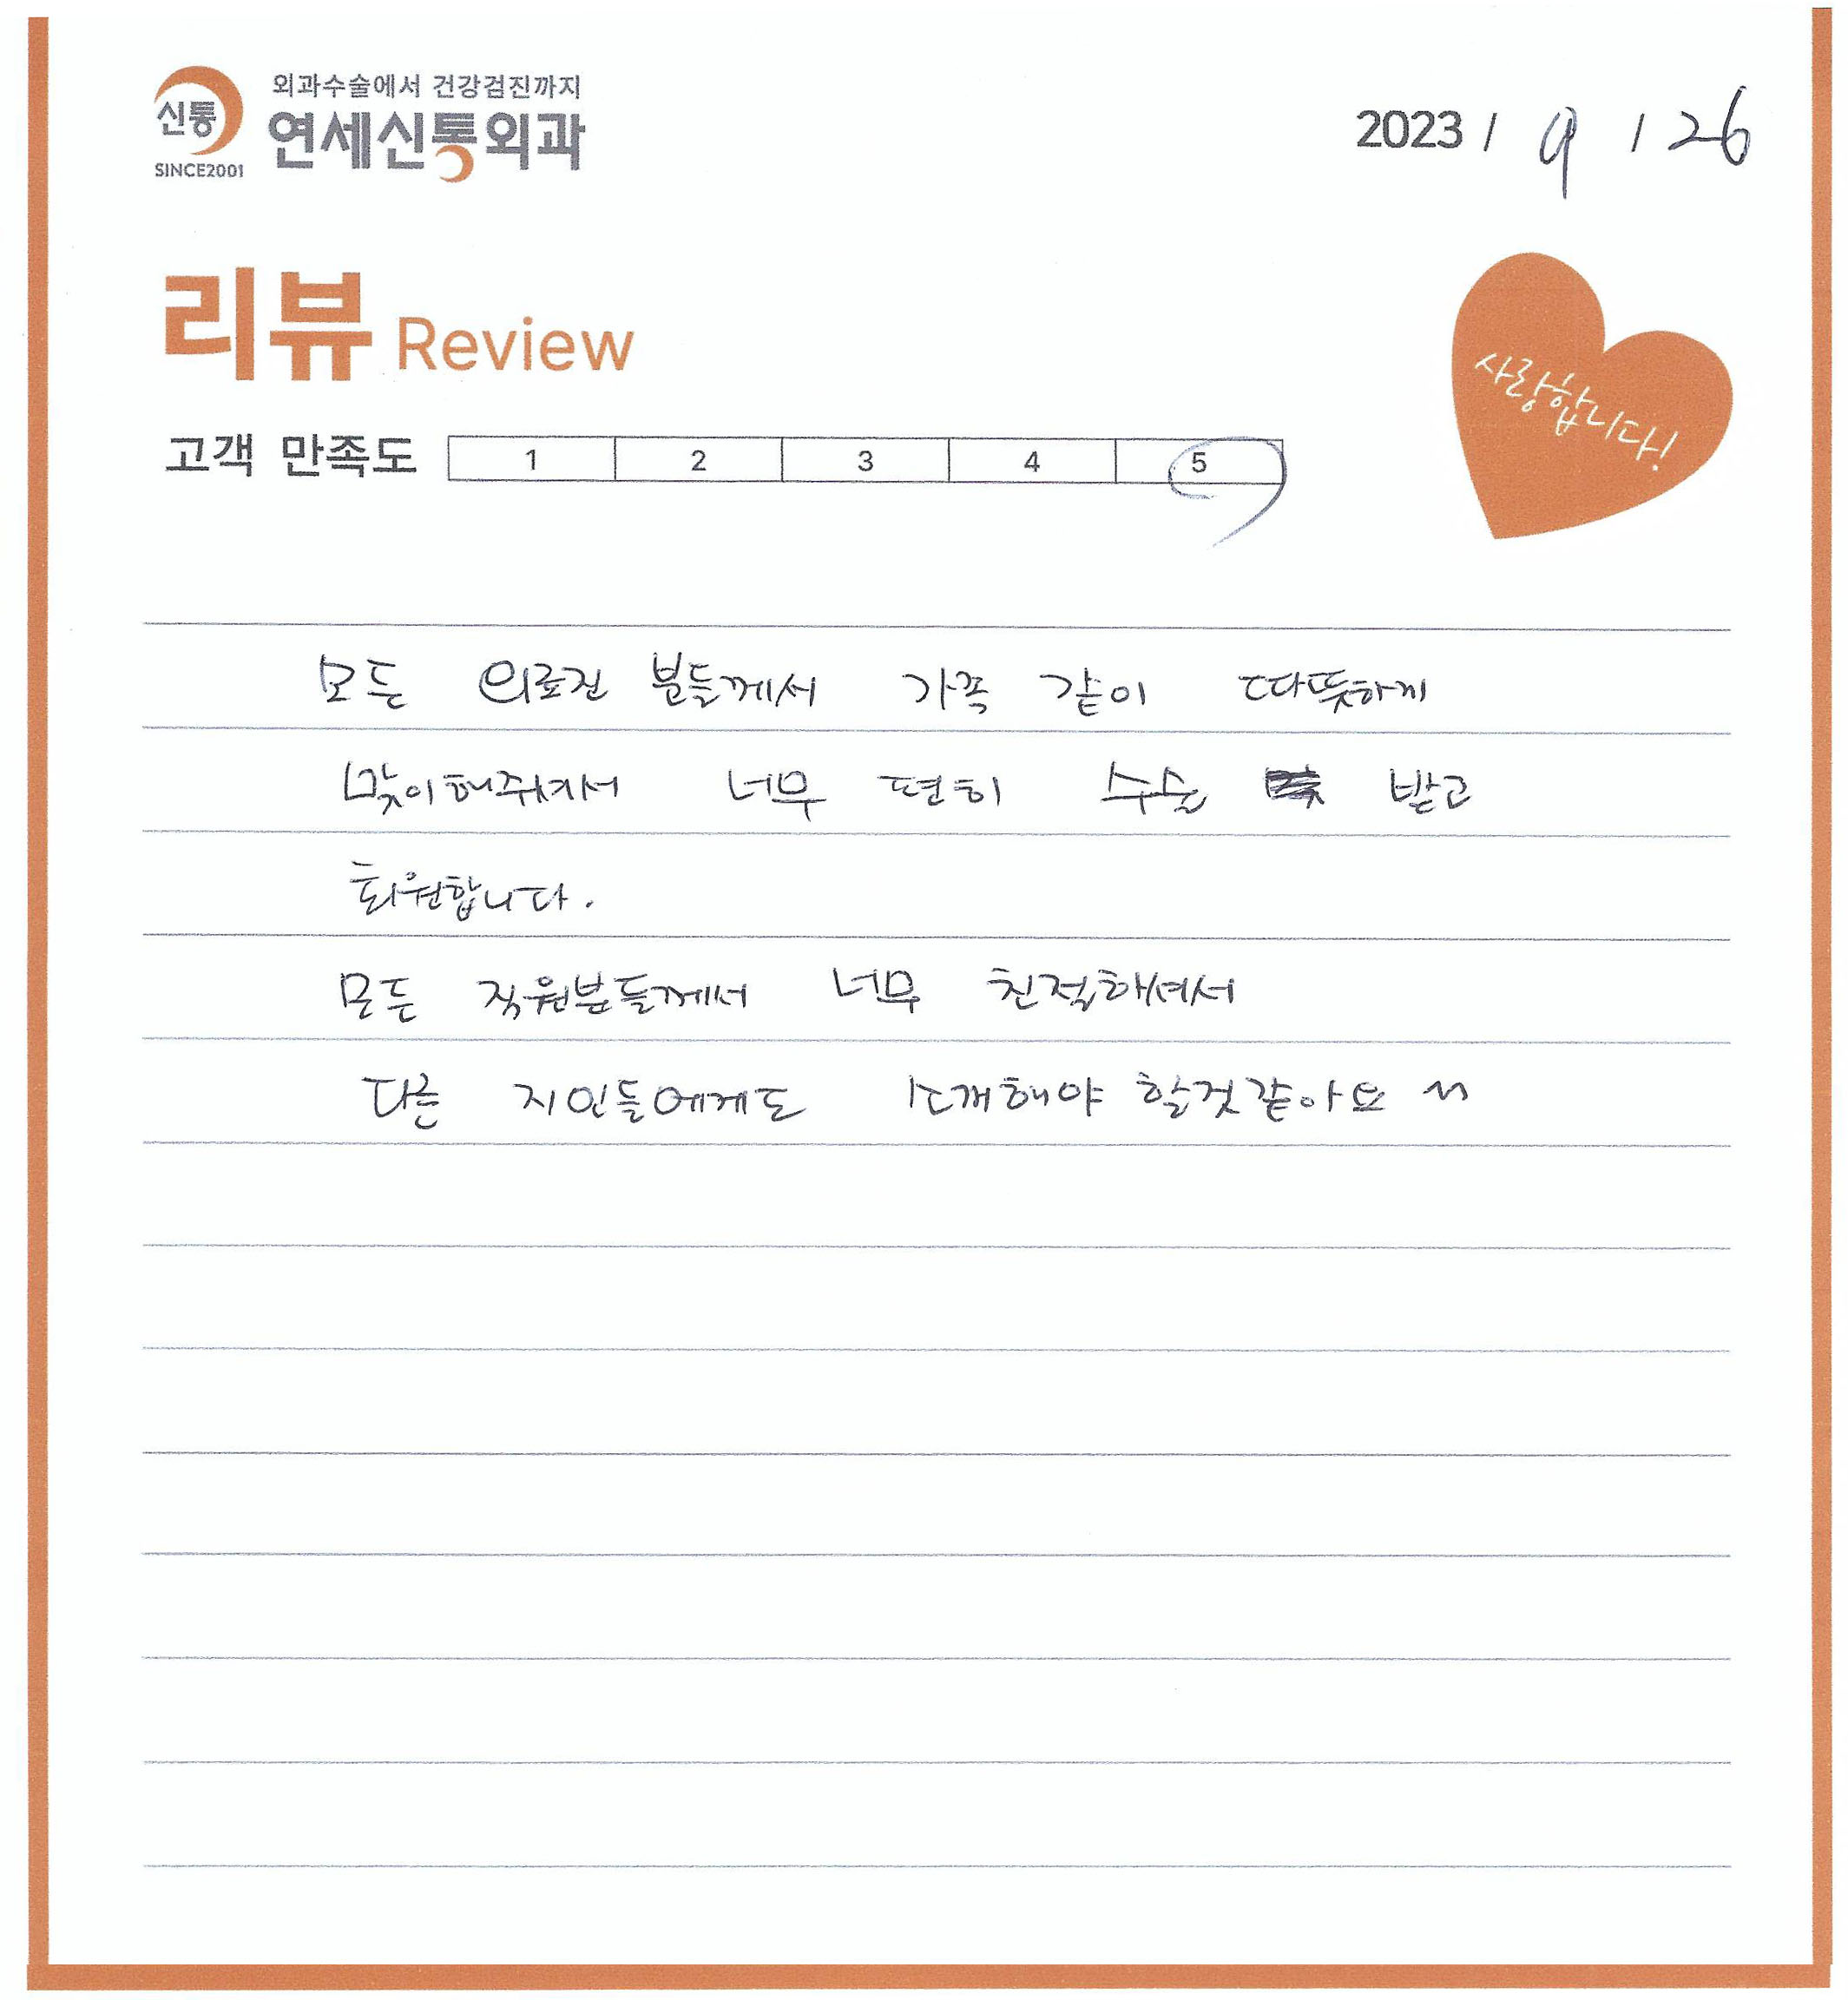 신통
SINCE2001
외과수술에서 건강검진까지
연세신통외과
2023 / 9 / 26
리뷰 Review
사랑합니다!
고객 만족도 1 2 3 4 5
모든 의료진 분들께서 가족 같이 따뜻하게
맞이해주셔서 너무 편히 수술 받고
회원합니다.
모든 직원분들께서 너무 친절하셔서
다른 지인들에게도 소개해야 할것같아요 ^^